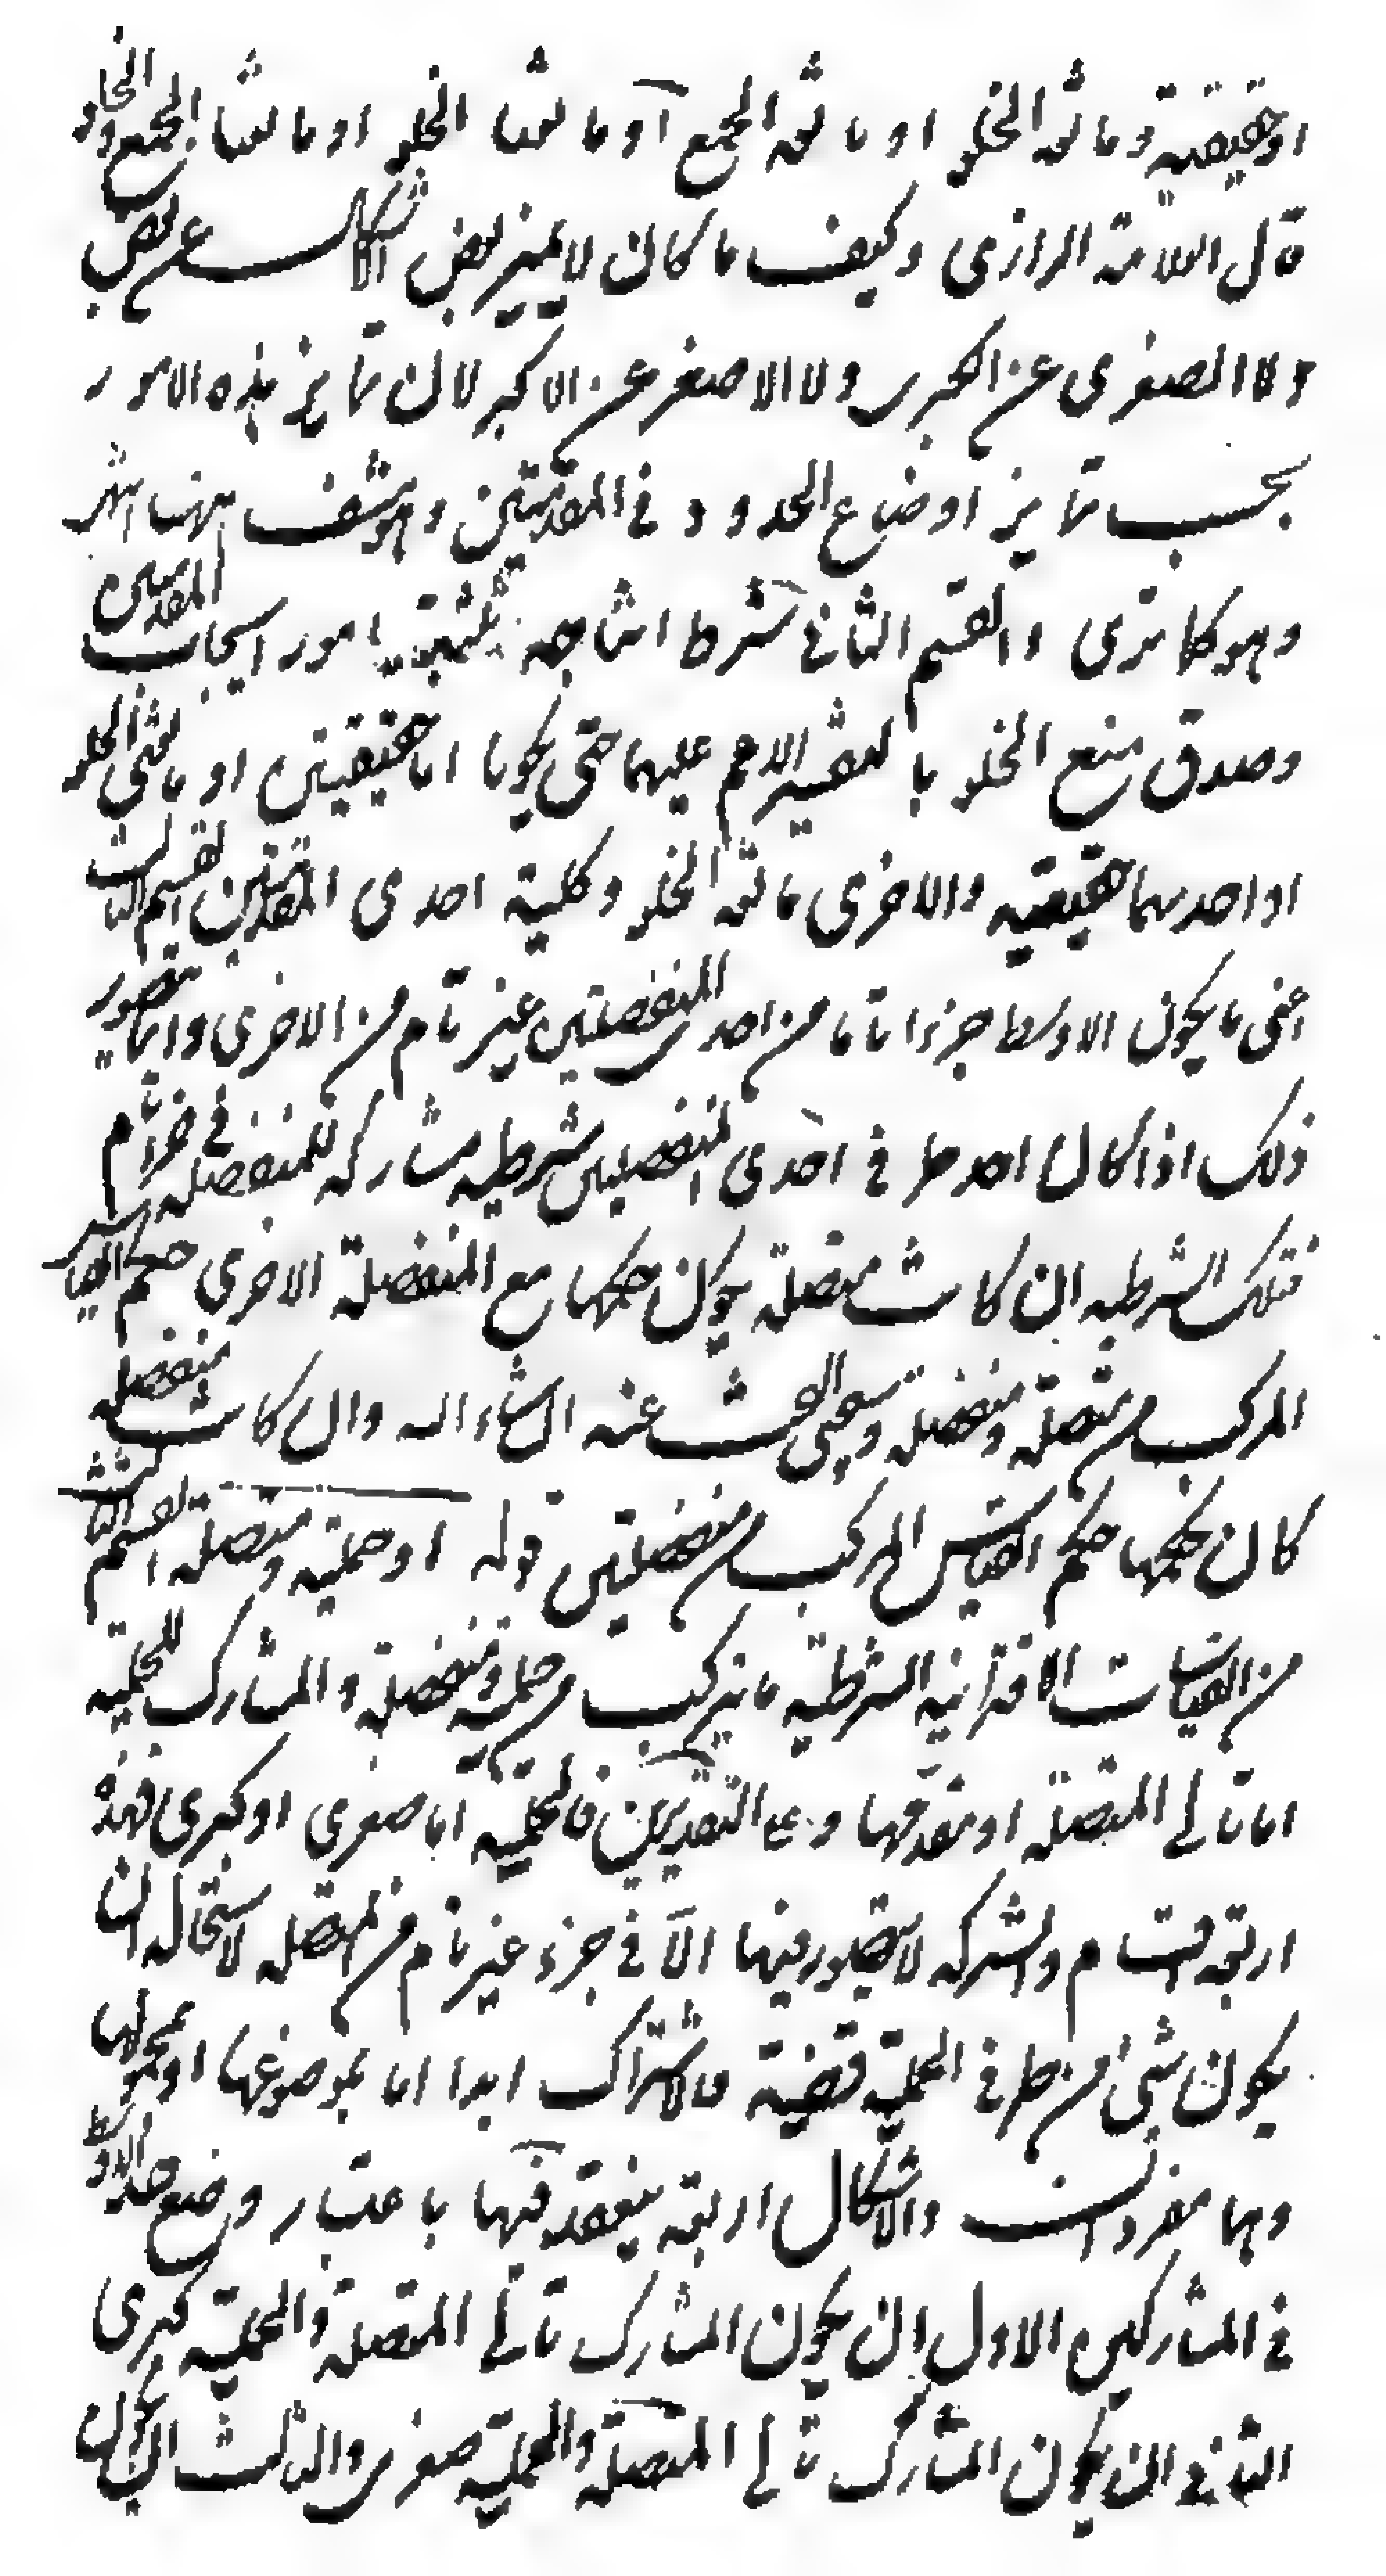 او حقيقية ومانعة الخلو او مانعة الجمع او مانعتا الخلو او مانعتا الجمع والخلو
قال العلامة الرازى وكيف ما كان لا يتميز بعض الاشكال عن بعض
ولا الصغرى عن الكبرى ولا الاصغر عن الاكبر لان تمايز هذه الامور
بحسب تمايز اوضاع الحدود فى المقدمتين وهو منتف ههنا انتهى
وهو كما ترى والقسم الثانى شرط انتاجه ثلثة امور ايجاب المقدمتين
وصدق منع الخلو بالتفسير الاعم عليهما حتى يكونا اما حقيقيتين او مانعتى الخلو
او احدهما حقيقية والاخرى مانعة الخلو وكلية احدى المقدمتين القسم الثالث
اعنى ما يكون الاوسط جزءا تاما من احد المنفصلتين غير تام من الاخرى وانما يتصور
ذلك اذا كان احد طرفى احدى المنفصلتين شرطية مشاركة للمنفصلة فى جزء تام
فتلك الشرطية ان كانت متصلة يكون حكمها مع المنفصلة الاخرى حكم القياس
المركب من متصلة ومنفصلة وسيجئ البحث عنه انشاء الله وان كانت منفصلة
كان حكمها حكم القياس المركب من منفصلتين قوله او حملية ومتصلة القسم الثالث
من القياسات الاقترانية الشرطية ما يتركب من حملية ومتصلة والمشارك للحملية
اما تالى المتصلة او مقدمها وعلى التقديرين فالحملية اما صغرى او كبرى فهذه
اربعة اقسام والشركة لا يتصور فيها الا فى جزء غير تام من المتصلة لاستحالة ان
يكون شئ من طرفى الحملية قضية فالاشتراك ابدا اما بموضوعها او بمحمولها
وهما مفردان والاشكال اربعة ينعقد فيها باعتبار وضع حد الاوسط
فى المشاركين الاول ان يكون المشارك تالى المتصلة والحملية كبرى
الثانى ان يكون المشارك تالى المتصلة والحملية صغرى والثالث ان يكون